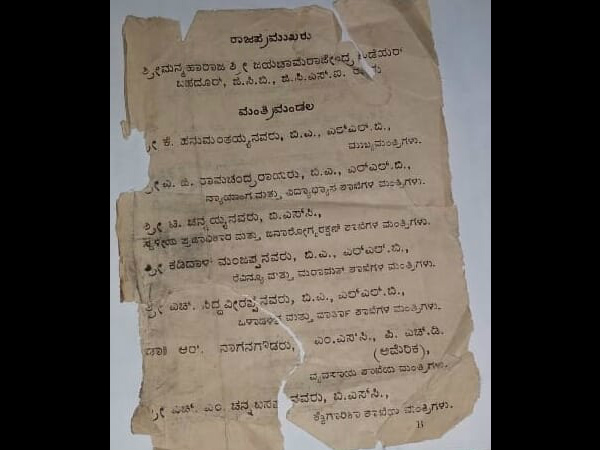 ರಾಜಪ್ರಮುಖರು
ಶ್ರೀಮನ್ಮಹಾರಾಜ ಶ್ರೀ ಜಯಚಾಮರಾಜೇಂದ್ರ ಒಡೆಯರ್
ಬಹದೂರ್, ಜಿ.ಸಿ.ಬಿ., ಜಿ.ಸಿ.ಎಸ್.ಐ.
ಮಂತ್ರಿಮಂಡಲ
ಶ್ರೀ ಕೆ. ಹನುಮಂತಯ್ಯನವರು, ಬಿ.ಎ., ಎಲ್‌ಎಲ್.ಬಿ.,
ಮುಖ್ಯಮಂತ್ರಿಗಳು.
ಶ್ರೀ ಎ. ಜಿ. ರಾಮಚಂದ್ರರಾಯರು, ಬಿ.ಎ., ಎಲ್‌ಎಲ್.ಬಿ.,
ನ್ಯಾಯಾಂಗ ಮತ್ತು ವಿದ್ಯಾಭ್ಯಾಸ ಶಾಖೆಗಳ ಮಂತ್ರಿಗಳು.
ಶ್ರೀ ಟಿ. ಚನ್ನಯ್ಯನವರು, ಬಿ.ಎಸ್‌ಸಿ.,
ಸ್ಥಳೀಯ ಪ್ರಜಾಧಿಕಾರ ಮತ್ತು ಜನಾರೋಗ್ಯರಕ್ಷಣೆ ಶಾಖೆಗಳ ಮಂತ್ರಿಗಳು.
ಶ್ರೀ ಕಡಿದಾಳ ಮಂಜಪ್ಪನವರು, ಬಿ.ಎ., ಎಲ್‌ಎಲ್.ಬಿ.,
ರೆವಿನ್ಯೂ ಮತ್ತು ಮರಾಮತ್ ಶಾಖೆಗಳ ಮಂತ್ರಿಗಳು.
ಶ್ರೀ ಎಚ್. ಸಿದ್ದವೀರಪ್ಪನವರು, ಬಿ.ಎ., ಎಲ್‌ಎಲ್.ಬಿ.,
ಒಳಾಡಳಿತ ಮತ್ತು ವಾರ್ತಾ ಶಾಖೆಗಳ ಮಂತ್ರಿಗಳು.
ಡಾ|| ಆರ್. ನಾಗನಗೌಡರು, ಎಂ.ಎಸ್‌ಸಿ., ಪಿ. ಎಚ್.ಡಿ.
(ಅಮೆರಿಕ),
ವ್ಯವಸಾಯ ಶಾಖೆಯ ಮಂತ್ರಿಗಳು.
ಶ್ರೀ ಎಚ್. ಎಂ. ಚನ್ನಬಸಪ್ಪನವರು, ಬಿ.ಎಸ್‌ಸಿ.,
ಕೈಗಾರಿಕಾ ಶಾಖೆಯ ಮಂತ್ರಿಗಳು.
B